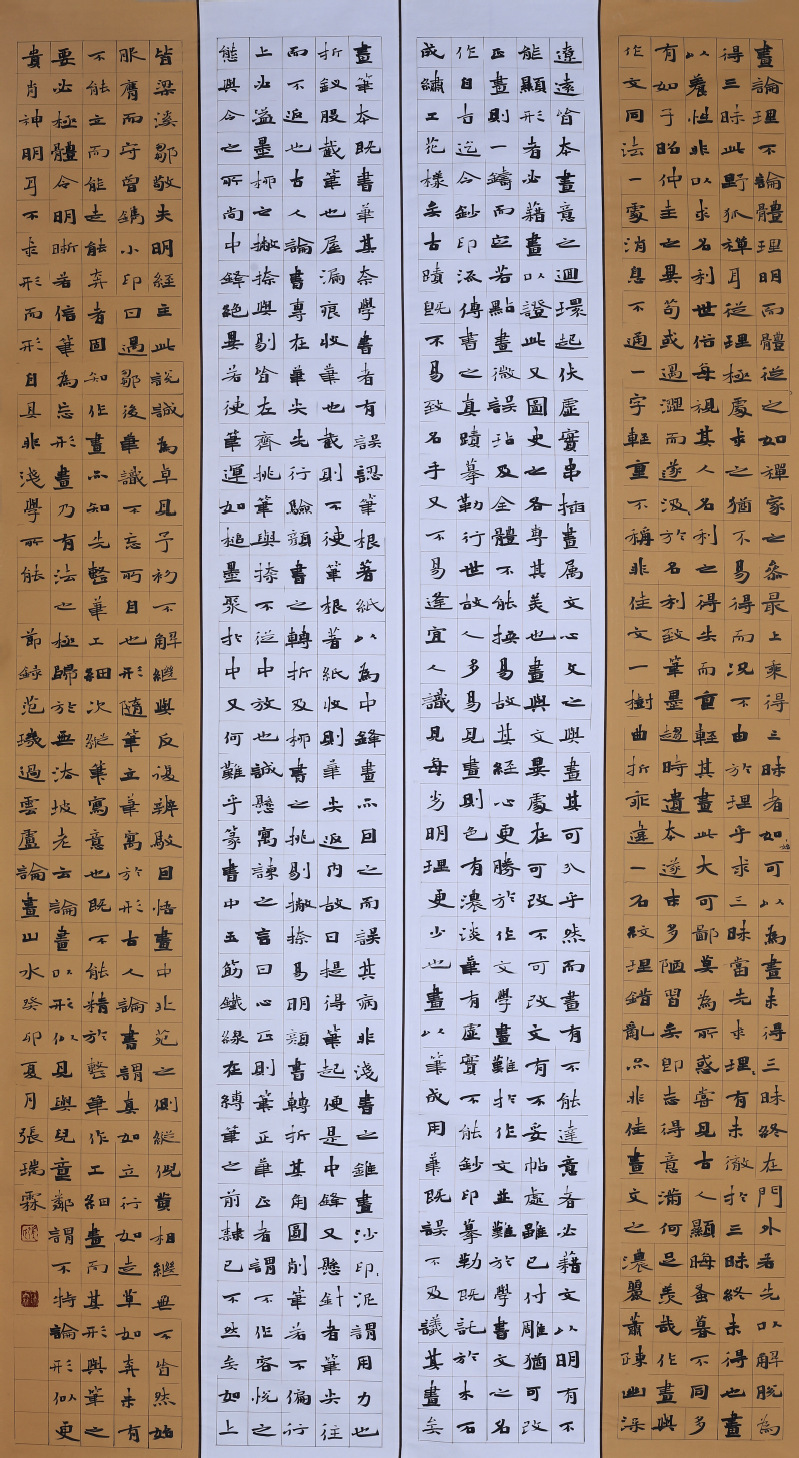 畫論理不論體理明而體從之如禪家之參最上乘得三昧者始可以為畫未得三昧終在門外若先以解脫為
得三昧此野狐禪耳從理極處求之猶不易得而況不由於理乎求三昧當先求理理有未徹於三昧終未得也畫
以養性非以求名利世俗每視其人名利之得失而重輕其畫此大可鄙莫為所惑嘗見古人顯晦蚤暮不同多
有如子昭仲圭之異苟或遇澀而遂汲汲於名利致筆墨趨時遺本遂末多陋習矣即志得意滿何足羨哉作畫與
作文同法一處消息不通一字輕重不稱非佳文一樹曲折乖違一石紋理錯亂亦非佳畫文之濃麗蕭疎幽深
遼遠皆本畫意之迴環起伏虛實串插畫屬文心文之與畫其可分乎然而畫有不能達意者必藉文以明有不
能顯形者必藉畫以證此又圖史之各專其美也畫與文異處在可改不可改文有不妥帖處雖已付雕猶可改
正畫則一鑄而定若點畫微誤玷及全體不能換易故其經心更勝於作文學畫難於作文並難於學書文之名
作自古迄今鈔印流傳書之真蹟摹勒行世故人多易見畫則色有濃淡筆有虛實不能鈔印摹勒既託於木石
成繡工花樣矣古蹟既不易致名手又不易逢宜人識見每少明理更少也畫以筆成用筆既誤不及議其畫矣
畫筆本既書筆其奈學書者有誤認筆根著紙以為中鋒畫亦因之而誤其病非淺書之錐畫沙印印泥謂用力也
折釵股截筆也屋漏痕收筆也截則不使筆根著紙收則筆尖返内故曰提得筆起便是中鋒又懸針者筆尖往
而不返也古人論書專在筆尖先行驗顏書之轉折及柳書之挑剔撇捺易明顏書轉折其角圓削筆若不偏行
上必溢墨柳之撇捺與剔皆左齊挑筆與捺不從中放也誠懸寓諫之言曰心正則筆正筆正者謂不作容悅之
態與今之所尚中鋒絕異若使筆運如槌墨聚於中又何難乎篆書中玉筋鐵線在縛筆之前隸已不然矣如上
皆梁溪鄒敬夫明經主此說誠為卓見予初不解繼與反復辨駁回悟畫中北苑之側縱倪黃相繼無不皆然始
服膺而守曾鐫小印曰遇鄒後筆識不忘所自也形隨筆立筆寓於形古人論書謂真如立行如走草如奔未有
不能立而能走能奔者固知作畫亦知先整筆工細次縱筆寫意也既不能精於整筆作工細畫而其形與筆之
要必極體合明晰若信筆為忘形畫乃有法之極歸於無法坡老云論畫以形似見與兒童鄰謂不特論形似更
貴肖神明耳不求形而形自具非淺學所能 節錄范璣過雲廬論畫山水癸卯夏月張瑞霖